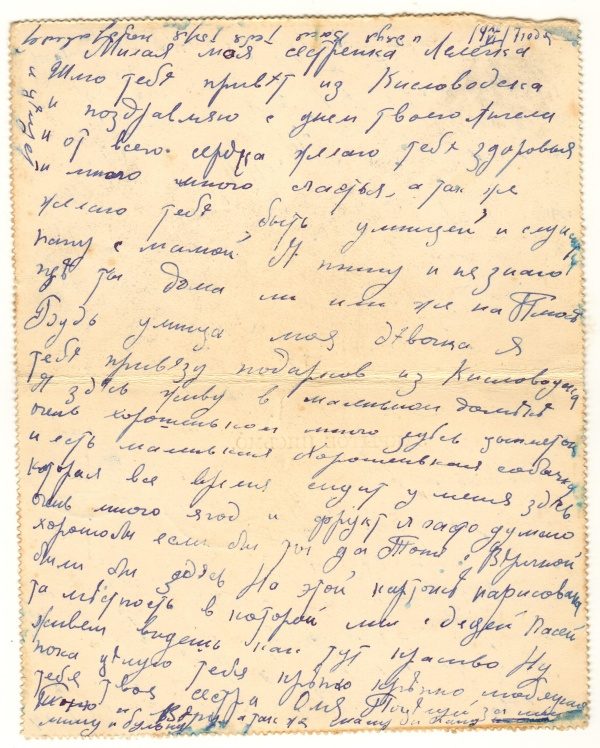 Милая моя сестренка Лелечка
Шлю тебѣ привѣт из Кисловодска
и поздравляю с днем твоего Ангела
и от всего сердца желаю тебѣ здоровья
и много много счастья, а так же
желаю тебѣ быть умницей и слуш
папу с мамой. Я пишу и не знаю
гдѣ ты дома ли или же на
Будь умница моя дѣвочка я
тебѣ привезу подарков из Кисловодска
Я здѣсь живу в маленьком домикѣ
очень хорошеньком много здѣсь цвѣтов
и есть маленькая хорошенькая собачка
которая все время сидит у меня здѣсь
очень много ягод и фрукт я часто думаю
хорошо бы если бы ты да Тоня с Вѣрочкой
были бы здѣсь На этой карточкѣ нарисована
та мѣстность в которой мы с дядей Васей
живем видешь как тут красиво Ну
пока цѣлую тебя крѣпко крѣпко любящая
тебя твоя сестра Оля Поцѣлуй за меня
и Вѣру а так же